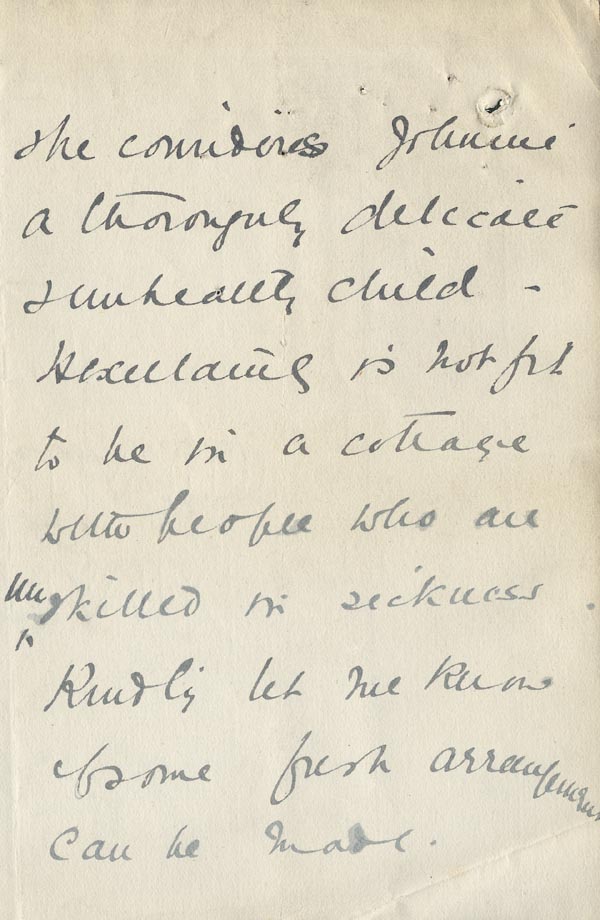 she considers Johnnie
a thoroughly delicate
& unhealthy child -
& certainly is not fit
to be in a cottage
with people who are
unskilled in sickness.
Kindly let me know
if some fresh arrangement
can be made.